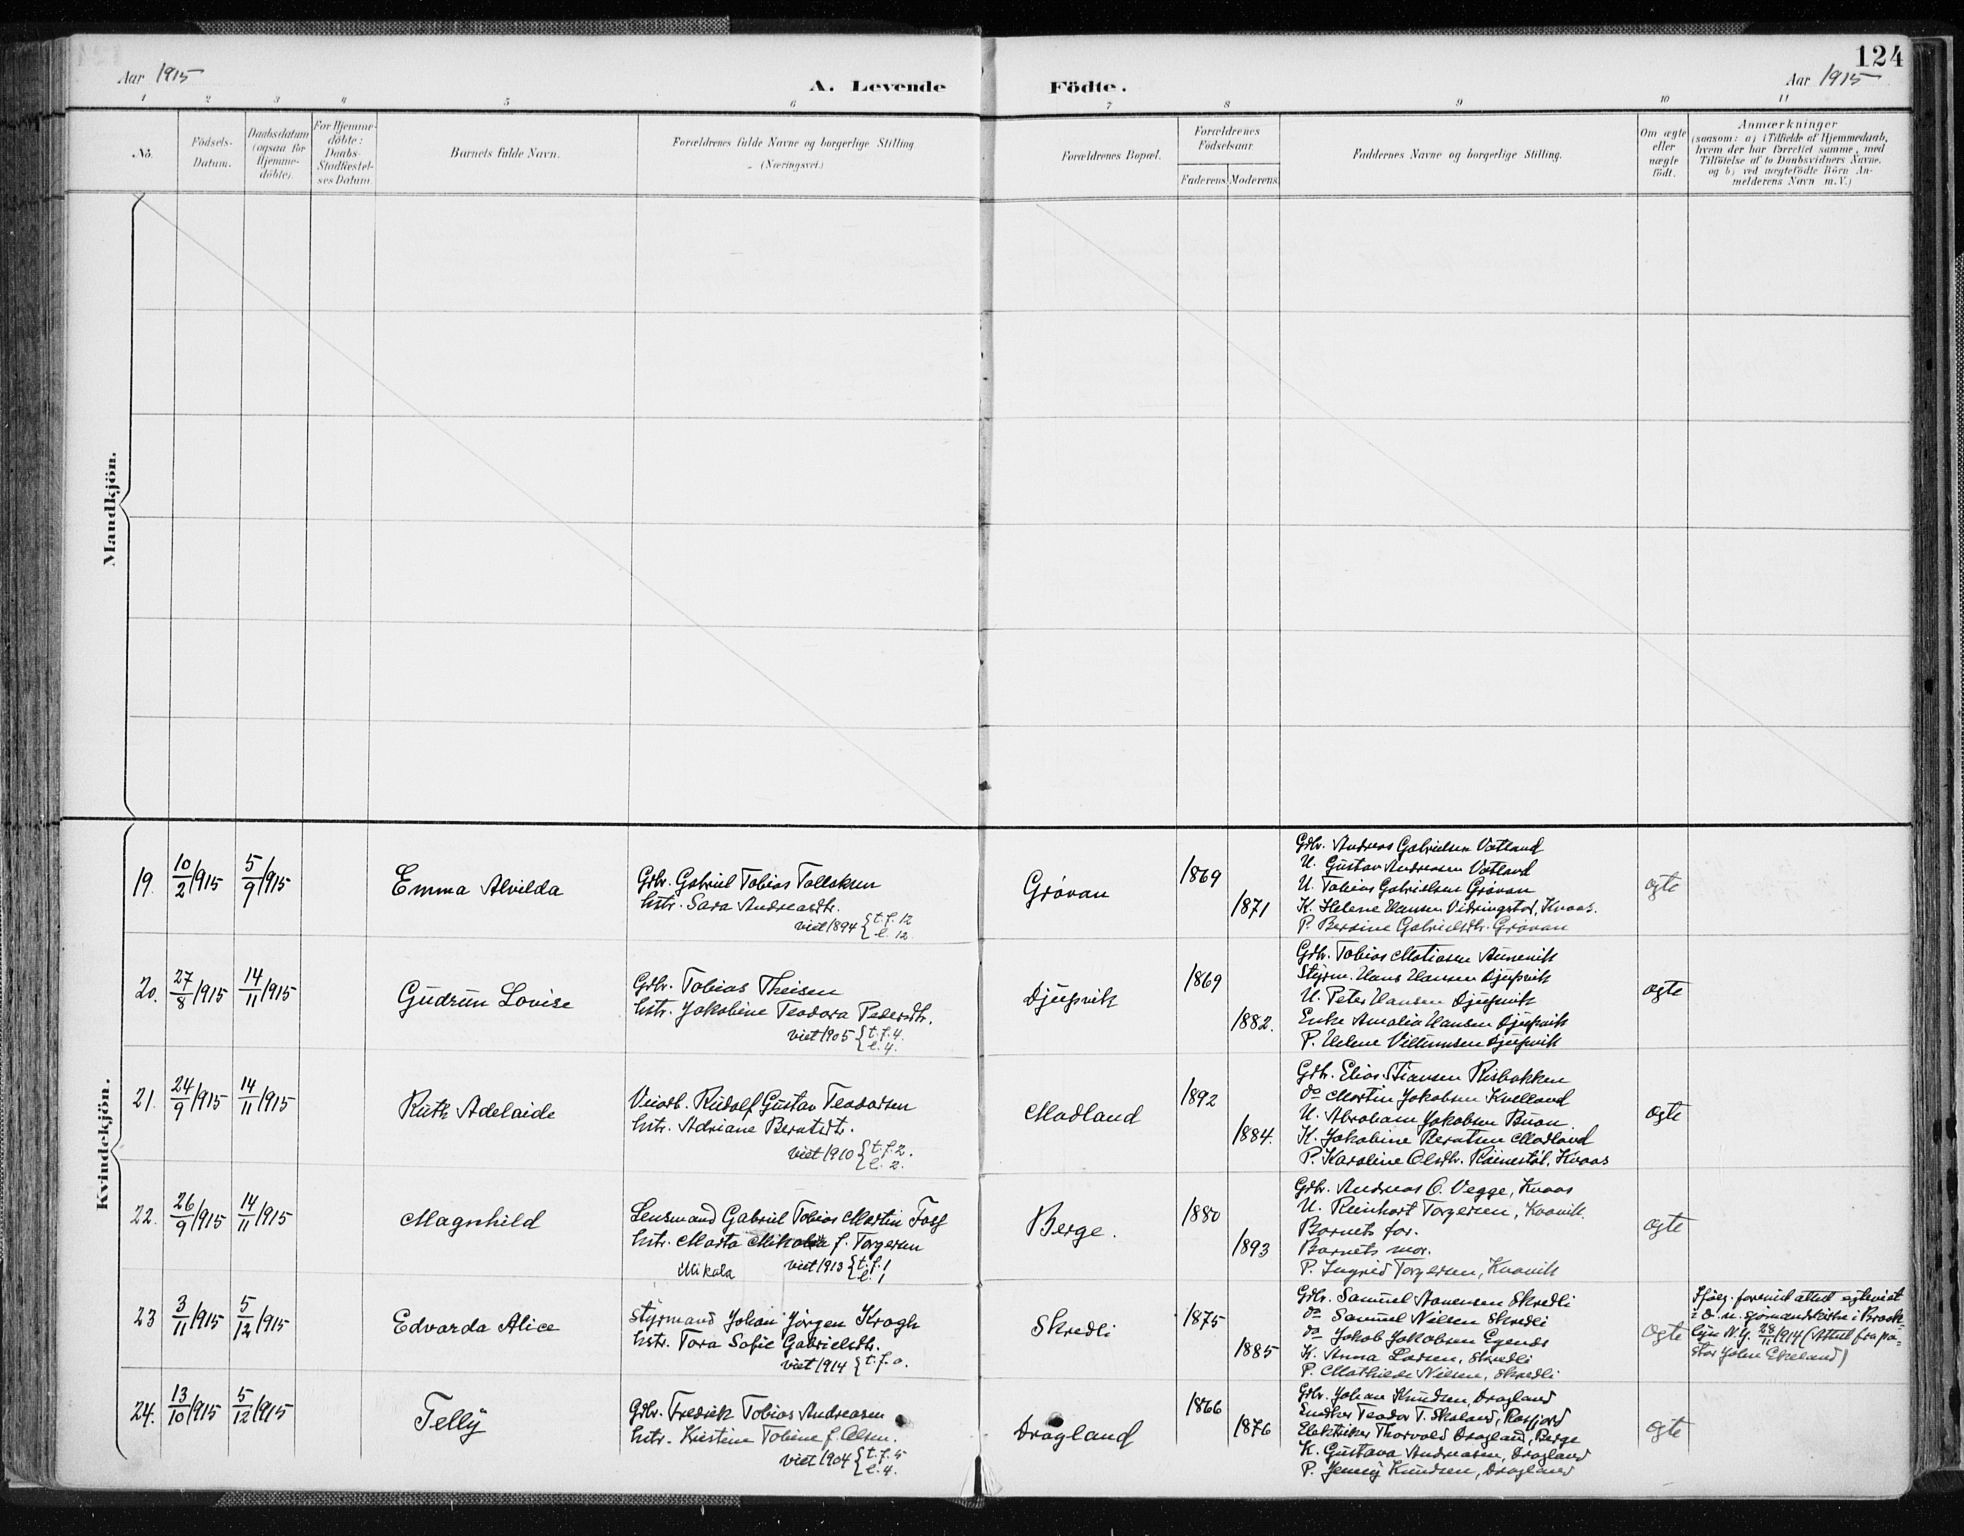 124
Aar 1915
A. Levende Födte.
Aar 1915
1 2 3 4 5 6 7 8 9 10 11
No.
Födsels-
Datum.
Daabsdatum
(ogsaa for
Hjemme-
döbte).
For Hjemme-
döbte:
Daabs-
Stadfæstel-
ses Datum
Barnets fulde Navn.
Forældrenes fulde Navne og borgerlige Stilling
(Næringsvei.)
Forældrenes Bopæl.
Forældrenes
Födselsaar.
Faderens. Moderens.
Faddernes Navne og borgerlige Stilling.
Om ægte
eller
uægte
födt.
Anmærkninger
(saasom: a) i Tilfælde af Hjemmedaab,
hvem der har forrettet samme, med
Tilföielse af to Daabsvidners Navne,
og b) ved uægtefödte Börn An-
melderens Navn m. V.)
Mandkjön.
Kvindekjön.
19. 10/2 1915 5/9 1915
Emma Alvilda
Gdbr. Gabriel Tobias Tallaksen
hstr. Sara Andreasdtr.
viet 1894 { t. f. 12
l. 12
Grövan
1869
1871
Gdbr. Andreas Gabrielsen Vatland
U. Gustav Andreasen Vatland
U. Tobias Gabrielsen Grövan
K. Helene Hansen Vidringstad, Kvaas.
P. Bersine Gabrielsdtr. Grövan
ægte
20. 27/8 1915 14/11 1915
Gudrun Lovise
Gdbr. Tobias Theisen
hstr. Jakobine Teodora Pedersdtr.
viet 1905 { t. f. 4.
l. 4.
Djupvik
1869
1882.
Gdbr. Tobias Matiasen Aunevik
Styrm. Hans Hansen Djupvik
U. Peter Hansen Djupvik
Enke Amalia Hansen Djupvik
P. Helene Villumsen Djupvik
ægte
21. 24/9 1915 14/11 1915
Ruth Adelaide
Veiarb. Rudolf Gustav Teodorsen
hstr. Adriane Berntsdtr.
viet 1910 { t. f. 2.
l. 2.
Madland
1892
1884.
Gdbr. Elias Stiansen Risbakken
do Martin Jakobsen Kvelland
U. Abraham Jakobsen Buan
K. Jakobine Berntsen Madland
P. Karoline Olsdtr. Röinestöl, Kvaas
ægte
22. 26/9 1915 14/11 1915
Magnhild
Lensmand Gabriel Tobias Martin
hstr. Marta f. Torgersen
Mikala
viet 1913 { t. f. 1
l. 1
Berge.
1880
1893
Gdbr. Andreas O. Vegge, Kvaas
U. Reinhart Torgersen, Kvavik.
Barnets far.
Barnets mor.
P. Ingrid Torgersen, Kvavik
ægte
23 3/11 1915 5/12 1915
Edvarda Alice
Styrmand Johan Jörgen Krogh
hstr. Tora Sofie Gabrielsdtr.
viet 1914 { t. f. 0.
Skredli
1875
1885
Gdbr. Samuel Aanensen Skredli
do Samuel Nielsen Skredli
do Jakob Jakobsen Egenes
K. Anna Larsen, Skredli
P. Mathilde Nilsen, Skredli
ægte
Ifölg. forevist attest egteviet
i D. n. sjömandskirke i Brook-
lyn N.Y. 28/ 1914 (Attest fra pa-
stor John Ekeland)
24. 13/10 1915 5/12 1915
Telly
Gdbr. Fredrik Tobias Andreasen
hstr. Kirstine Tobine f. Olsen.
viet 1904 { t. f. 5
l. 4.
Dragland
1866
1876
Gdbr. Johan Knudsen, Dragland
Teodor T. Skoland, Rosfjord
Elektriker Thorvald Dragland, Berge
K. Gustava Andreasen, Dragland
P. Jenny Knudsen, Dragland
ægte